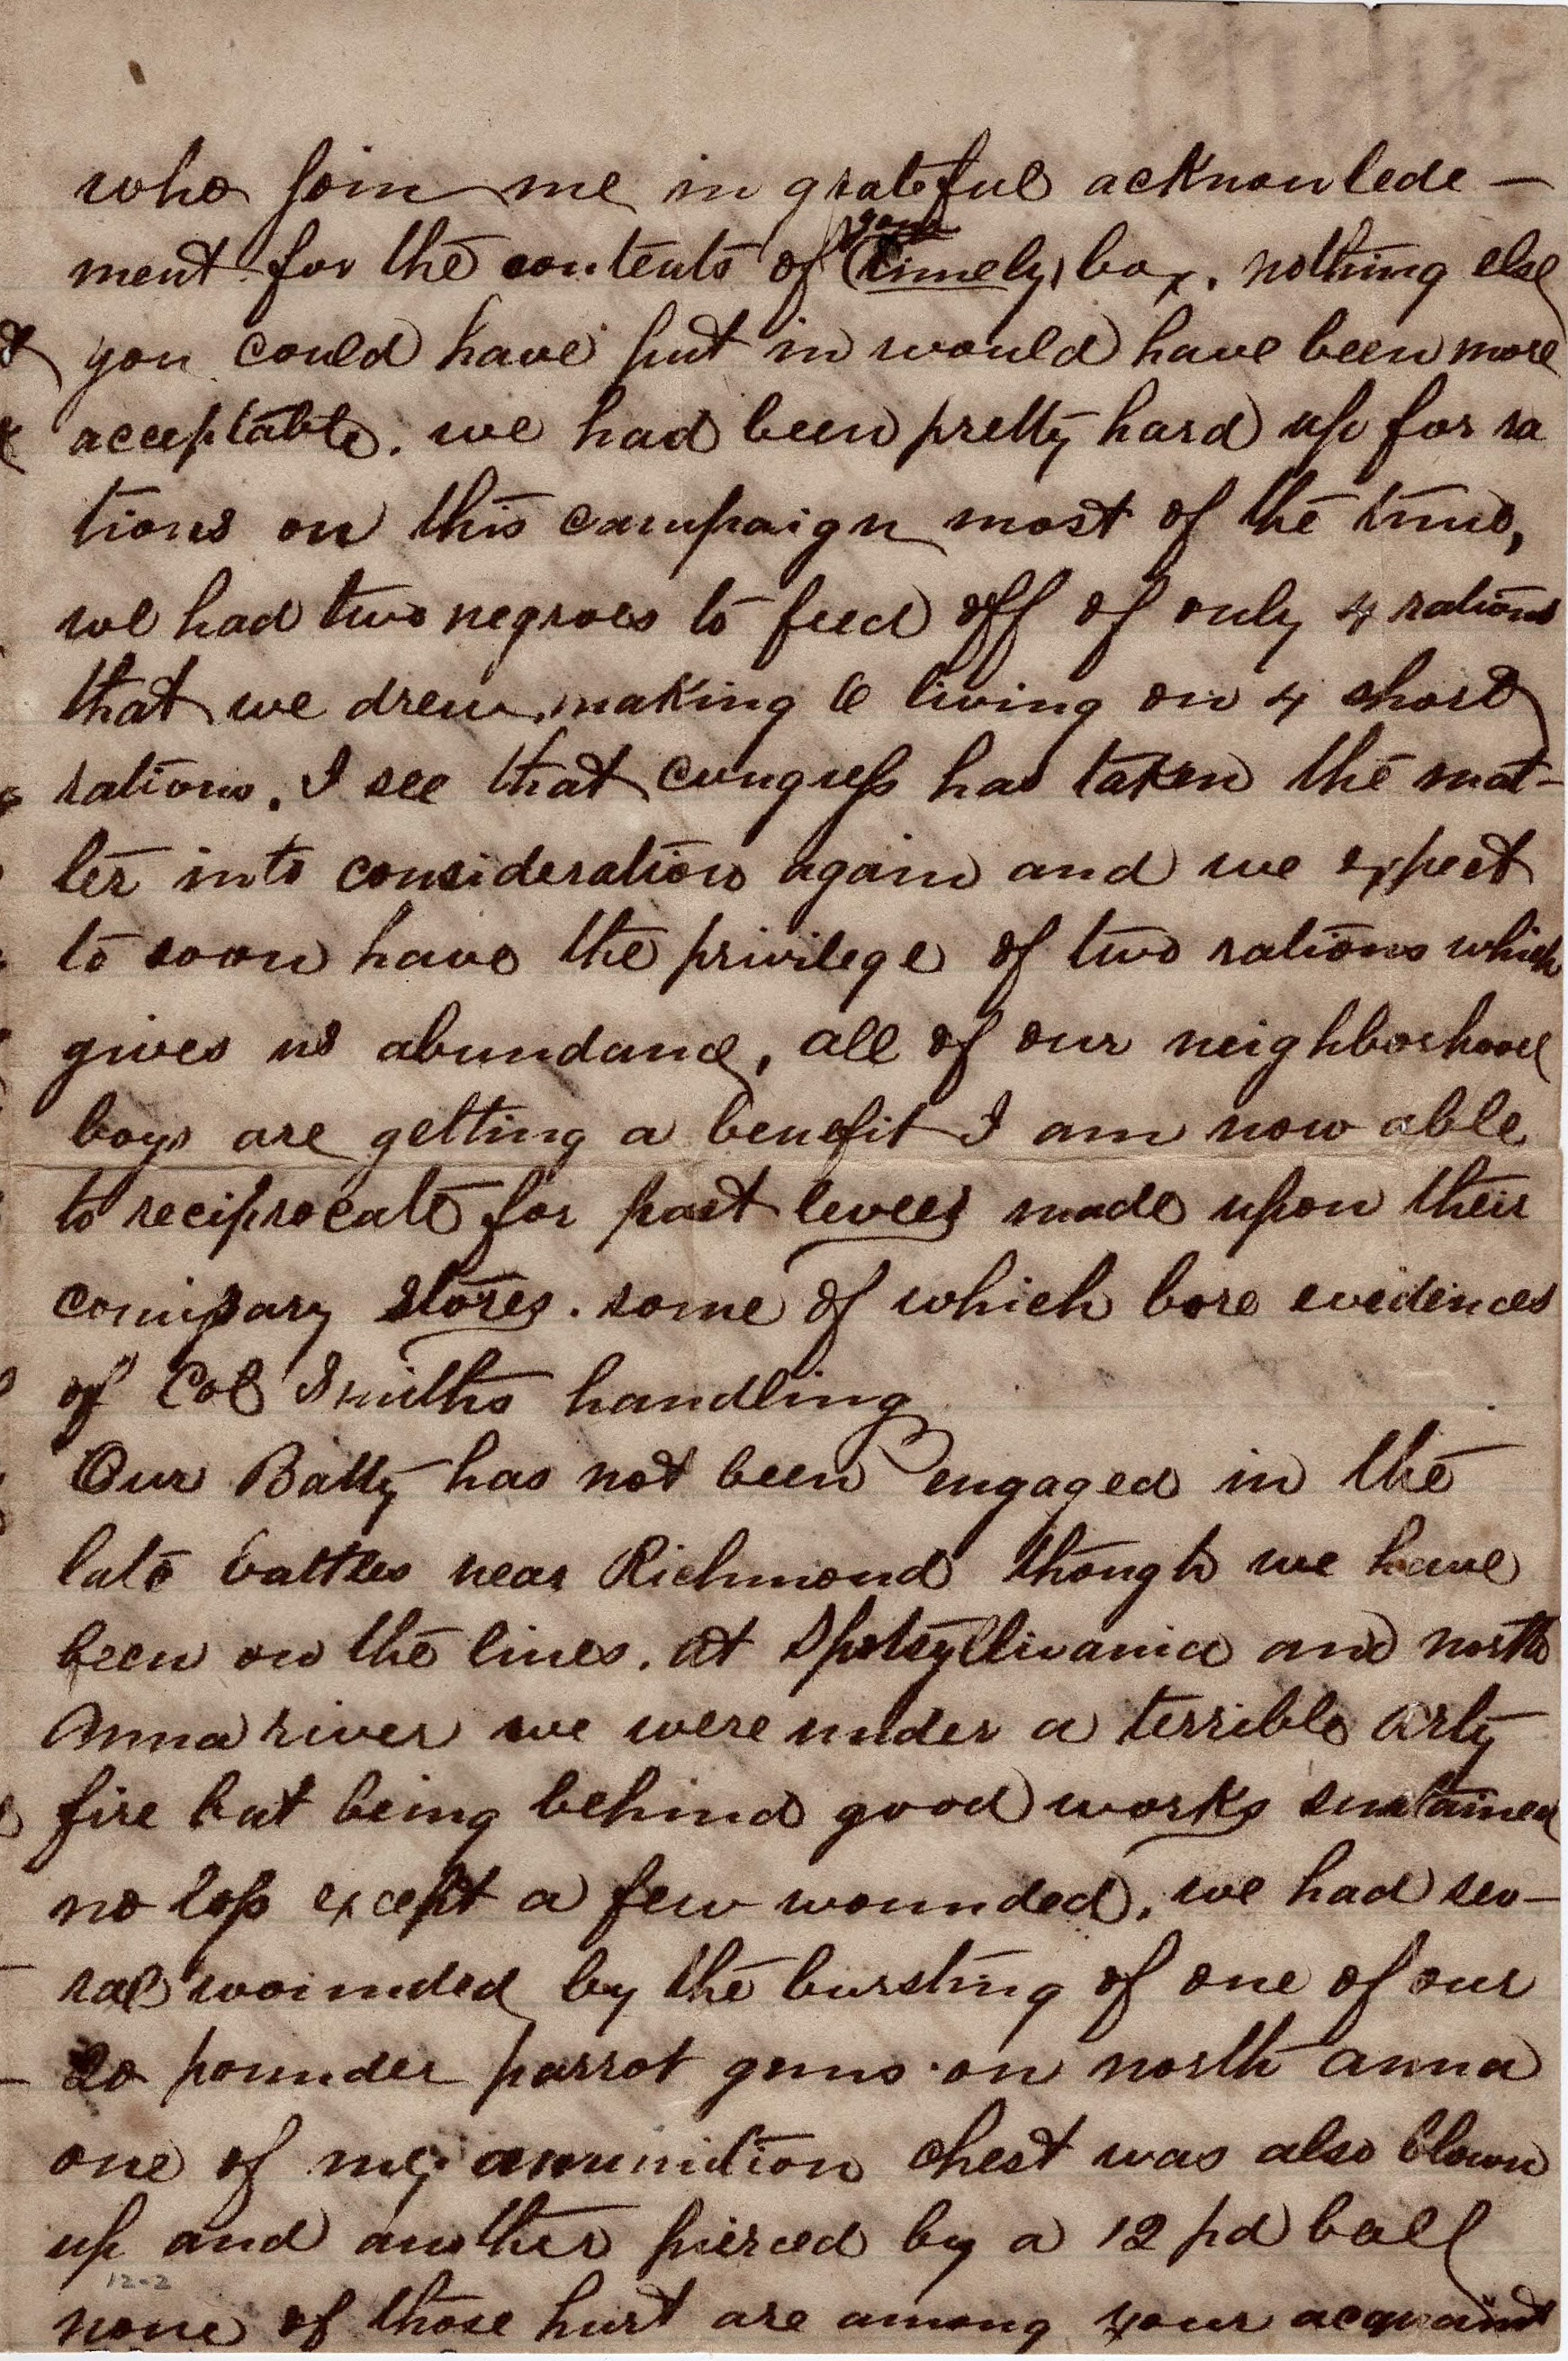 who join me in grateful acknowlede —
ment for the contents of your timely box. nothing else
you could have put in would have been more
acceptable. we had been pretty hard up for ra
tions on this campaign most of the time,
we had two negroes to feed off of only 4 rations
that we drew, making 6 living on 4 short
rations. I see that congress has taken the mat-
ter into consideration again and we expect
to soon have the privilege of two rations which
gives us abundance, all of our neighborhood
boys are getting a benefit I am now able
to reciprocate for past levees made upon their
comissary stores. some of which bore evidences
of Col Smiths handling
Our Batty has not been engaged in the
late battles near Richmond though we have
been on the lines. at Spotsyllivania and north
Anna river we were under a terrible arty
fire but being behind good works sustained
no loss except a few wounded, we had sev—
ral wounded by the bursting of one of our
20 pounder parrot guns on north anna
one of my ammunition chest was also blown
up and another pierced by a 12 pd ball
12-2
none of those hurt are among your acquaint